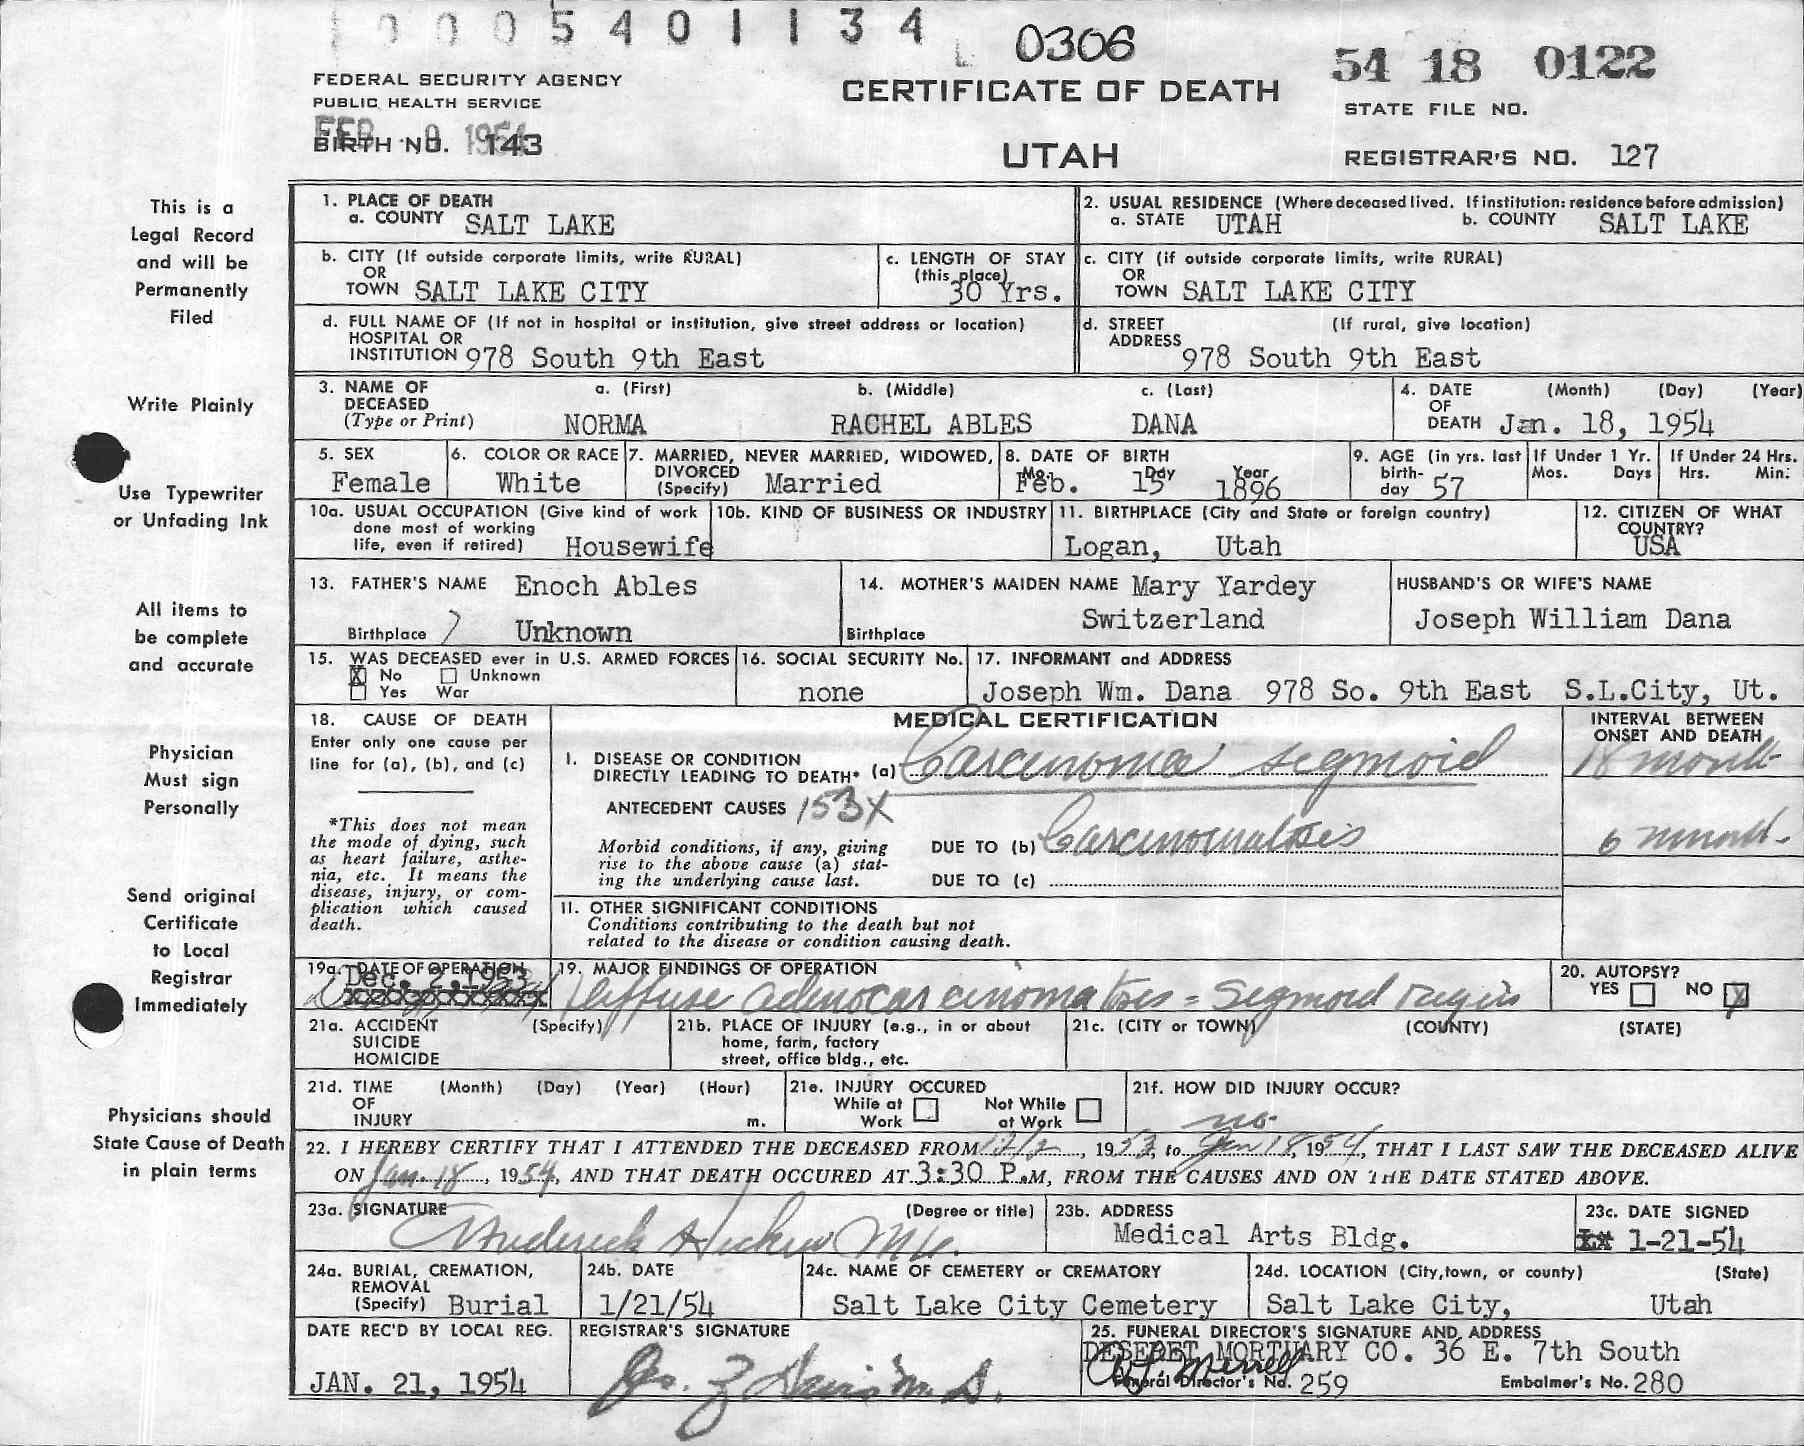 1 0 0 0 5 4 0 1 1 3 4
0306
54 18 0122
FEDERAL SECURITY AGENCY
PUBLIC HEALTH SERVICE
CERTIFICATE OF DEATH
STATE FILE NO.
FEB 9 1954
BIRTH NO. 143
UTAH
REGISTRAR'S NO. 127
This is a
Legal Record
and will be
Permanently
Filed
Write Plainly
Use Typewriter
or Unfading Ink
All items to
be complete
and accurate
Physician
Must sign
Personally
Send original
Certificate
to Local
Registrar
Immediately
Physicians should
State Cause of Death
in plain terms
1. PLACE OF DEATH
a. COUNTY SALT LAKE
2. USUAL RESIDENCE (Where deceased lived. If institution: residence before admission)
a. STATE UTAH b. COUNTY SALT LAKE
b. CITY (If outside corporate limits, write RURAL)
OR
TOWN SALT LAKE CITY
c. LENGTH OF STAY
(this place)
30 Yrs.
c. CITY (if outside corporate limits, write RURAL)
OR
TOWN SALT LAKE CITY
d. FULL NAME OF (If not in hospital or institution, give street address or location)
HOSPITAL OR
INSTITUTION 978 South 9th East
d. STREET (If rural, give location)
ADDRESS
978 South 9th East
3. NAME OF a. (First) b. (Middle) c. (Last)
DECEASED
(Type or Print) NORMA RACHEL ABLES DANA
4. DATE (Month) (Day) (Year)
OF
DEATH Jan. 18, 1954
5. SEX
Female
6. COLOR OR RACE
White
7. MARRIED, NEVER MARRIED, WIDOWED,
DIVORCED
(Specify) Married
8. DATE OF BIRTH
Mo. Day Year
Feb. 15 1896
9. AGE (in yrs. last
birth-
day 57
If Under 1 Yr.
Mos. Days
If Under 24 Hrs.
Hrs. Min.
10a. USUAL OCCUPATION (Give kind of work
done most of working
life, even if retired) Housewife
10b. KIND OF BUSINESS OR INDUSTRY
11. BIRTHPLACE (City and State or foreign country)
Logan, Utah
12. CITIZEN OF WHAT
COUNTRY?
USA
13. FATHER'S NAME Enoch Ables
Birthplace ? Unknown
14. MOTHER'S MAIDEN NAME Mary Yardey
Switzerland
Birthplace
HUSBAND'S OR WIFE'S NAME
Joseph William Dana
15. WAS DECEASED ever in U.S. ARMED FORCES
X No Unknown
Yes War
16. SOCIAL SECURITY No.
none
17. INFORMANT and ADDRESS
Joseph Wm. Dana 978 So. 9th East S.L.City, Ut.
18. CAUSE OF DEATH
Enter only one cause per
line for (a), (b), and (c)
*This does not mean
the mode of dying, such
as heart failure, asthe-
nia, etc. It means the
disease, injury, or com-
plication which caused
death.
MEDICAL CERTIFICATION
INTERVAL BETWEEN
ONSET AND DEATH
I. DISEASE OR CONDITION
DIRECTLY LEADING TO DEATH* (a) Carcinoma sigmoid 18 month
ANTECEDENT CAUSES 153X
Morbid conditions, if any, giving
rise to the above cause (a) stat-
ing the underlying cause last.
DUE TO (b) Carcinomatosis 6 month
DUE TO (c)
11. OTHER SIGNIFICANT CONDITIONS
Conditions contributing to the death but not
related to the disease or condition causing death.
19a. DATE OF OPERATION
Dec. 2, 1953
19. MAJOR FINDINGS OF OPERATION
Diffuse adenocarcinomatosis = sigmoid region
20. AUTOPSY?
YES NO X
21a. ACCIDENT (Specify)
SUICIDE
HOMICIDE
21b. PLACE OF INJURY (e.g., in or about
home, farm, factory
street, office bldg., etc.
21c. (CITY or TOWN) (COUNTY) (STATE)
21d. TIME (Month) (Day) (Year) (Hour)
OF
INJURY m.
21e. INJURY OCCURED
While at Work Not While at Work
21f. HOW DID INJURY OCCUR?
no
22. I HEREBY CERTIFY THAT I ATTENDED THE DECEASED FROM 12/2, 1953, to Jan 18, 1954, THAT I LAST SAW THE DECEASED ALIVE
ON Jan. 18, 1954, AND THAT DEATH OCCURED AT 3:30 P.M, FROM THE CAUSES AND ON THE DATE STATED ABOVE.
23a. SIGNATURE (Degree or title)
23b. ADDRESS
Medical Arts Bldg.
23c. DATE SIGNED
1-21-54
24a. BURIAL, CREMATION,
REMOVAL
(Specify) Burial
24b. DATE
1/21/54
24c. NAME OF CEMETERY or CREMATORY
Salt Lake City Cemetery
24d. LOCATION (City, town, or county) (State)
Salt Lake City, Utah
DATE REC'D BY LOCAL REG.
JAN. 21, 1954
REGISTRAR'S SIGNATURE
25. FUNERAL DIRECTOR'S SIGNATURE AND ADDRESS
DESERET MORTUARY CO. 36 E. 7th South
Funeral Director's No. 259 Embalmer's No. 280